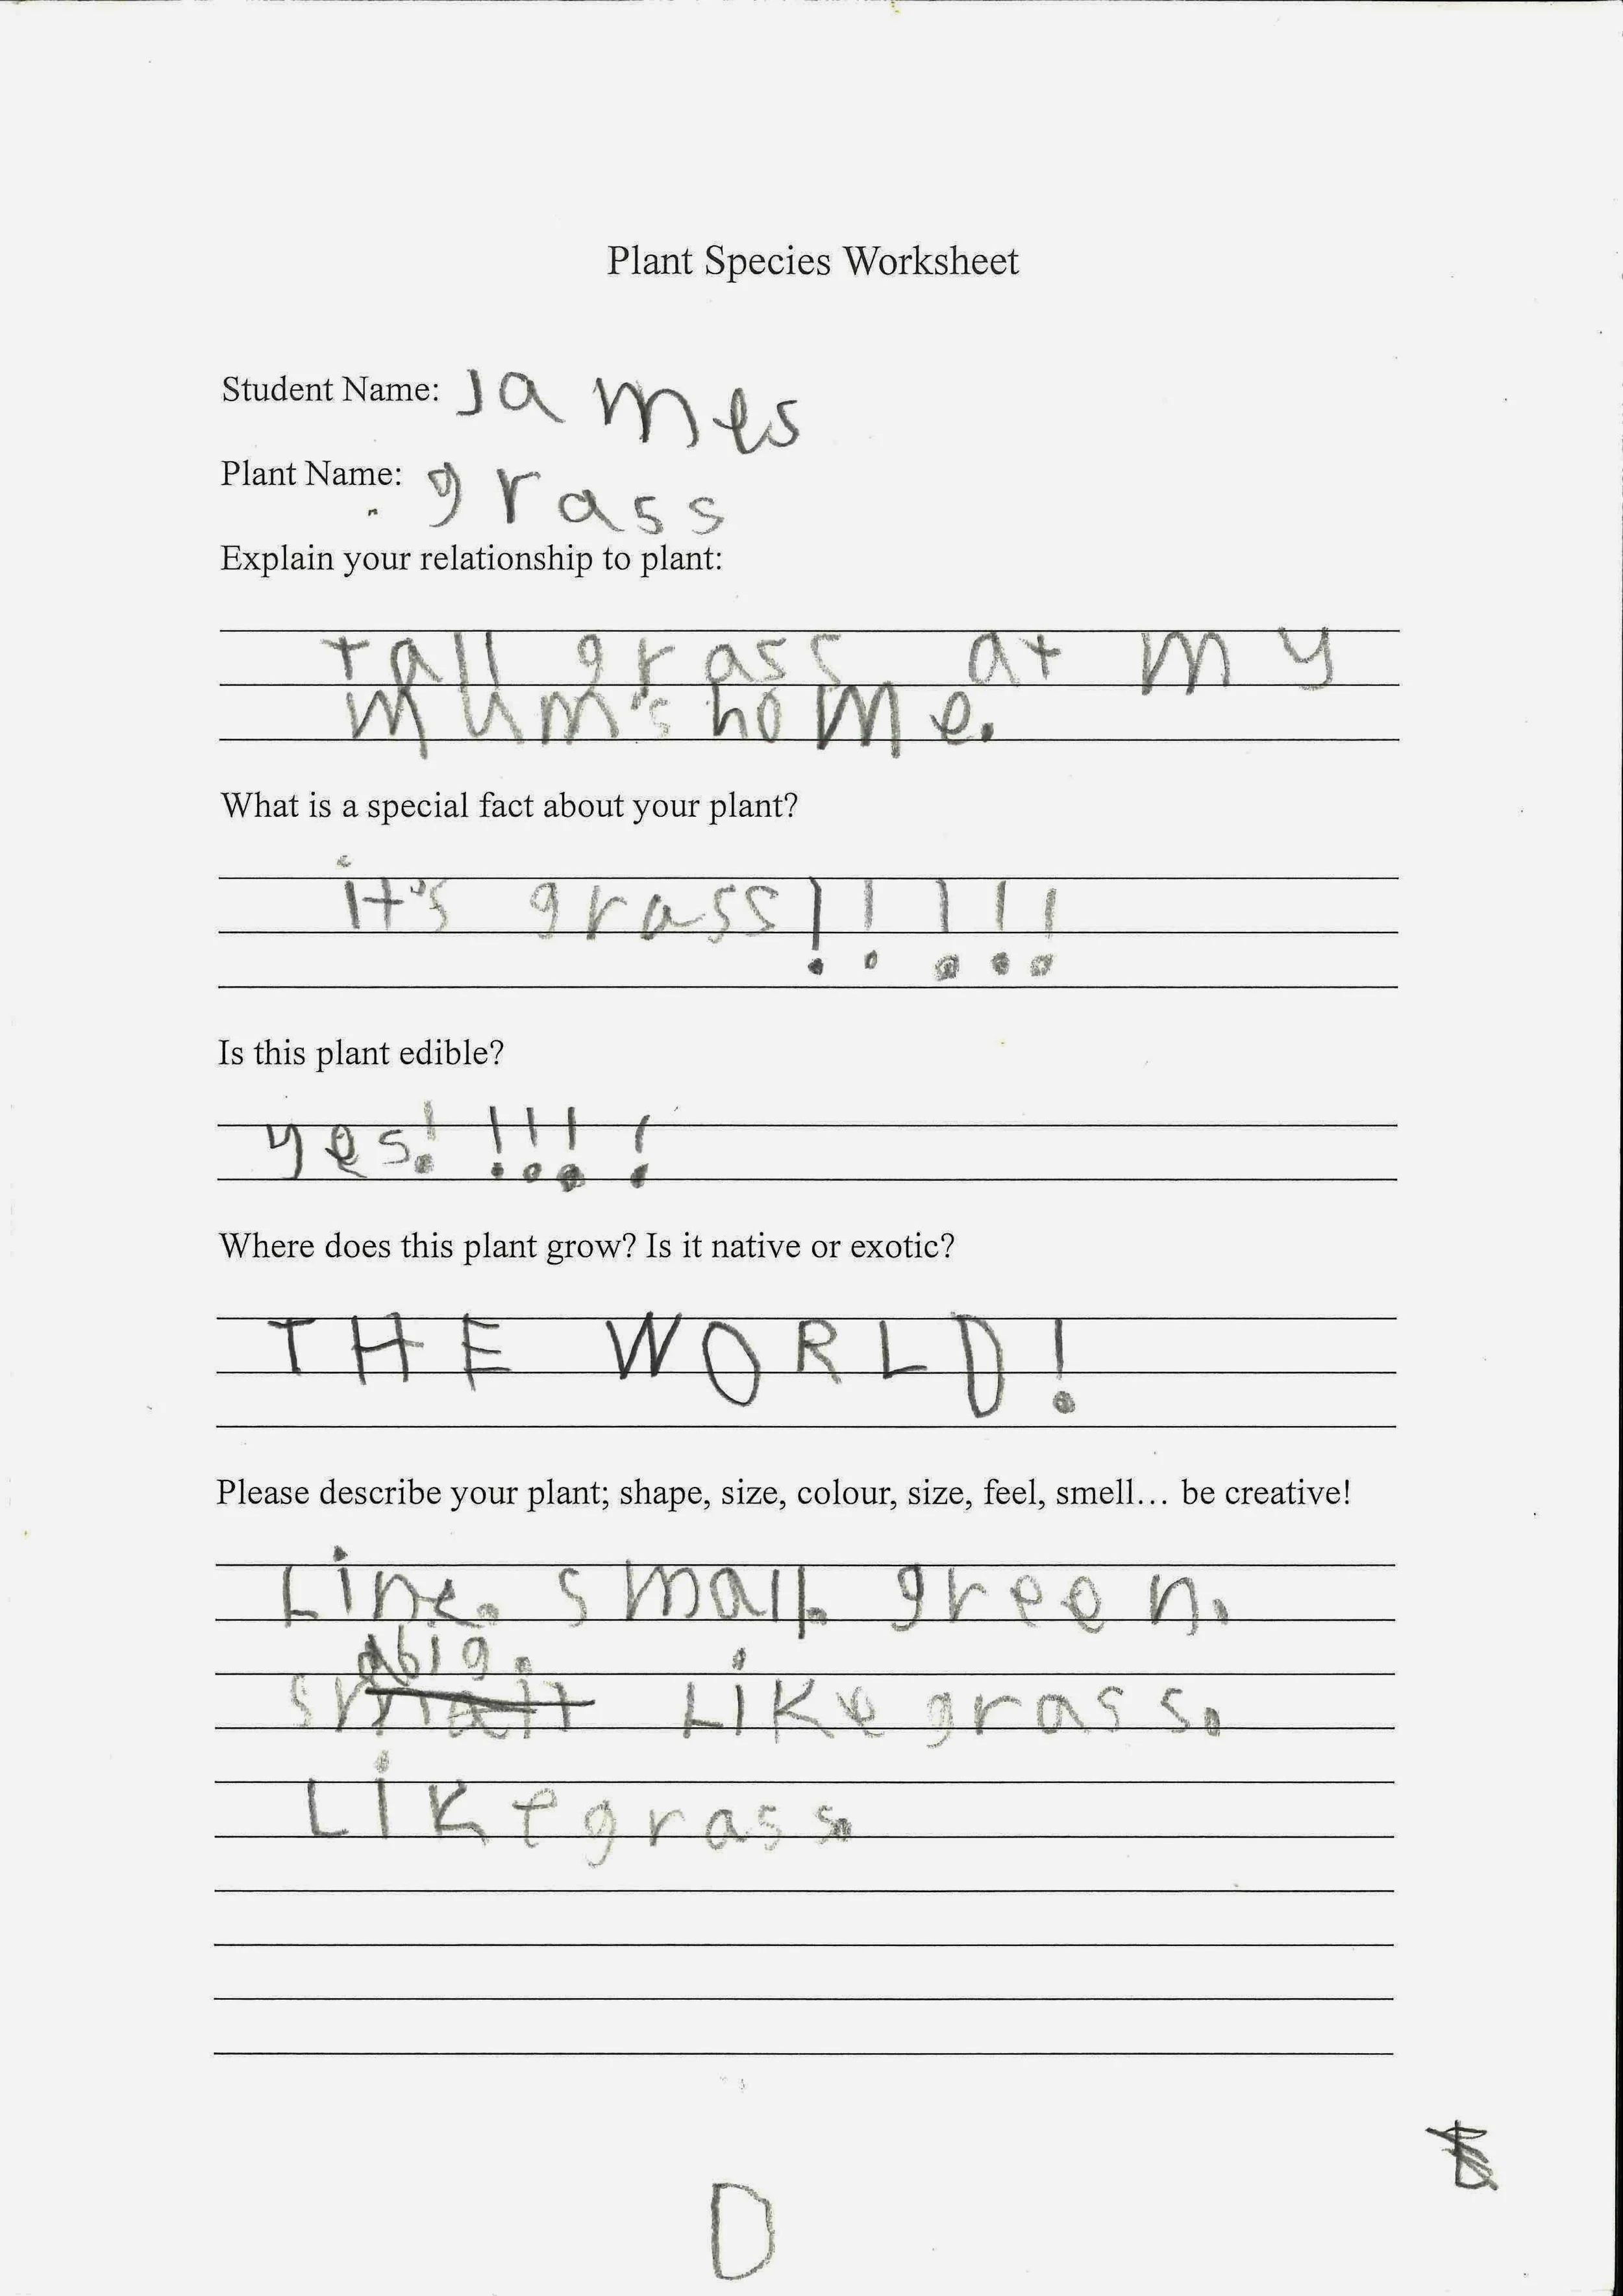 Plant Species Worksheet
Student Name: James
Plant Name: grass
Explain your relationship to plant:
tall grass at my
mum's home.
What is a special fact about your plant?
it's grass!!!!!
Is this plant edible?
yes! !!! !
Where does this plant grow? Is it native or exotic?
THE WORLD!
Please describe your plant; shape, size, colour, size, feel, smell… be creative!
Line. small. green.
big.
small Like grass.
Like grass.
D